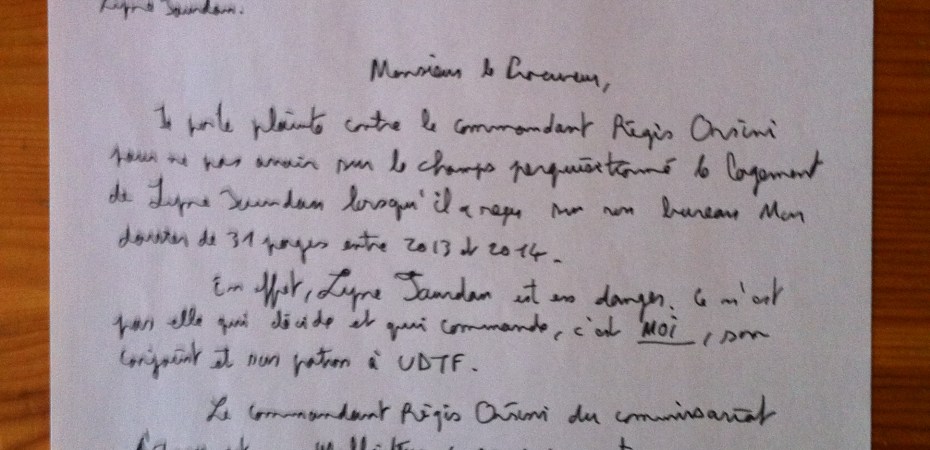 Lyne Jourdan.
Monsieur le Procureur,
Je porte plainte contre le commandant Régis Orsini
pour ne pas avoir sur le champs perquisitionné le logement
de Lyne Jourdan lorsqu'il a reçu sur son bureau Mon
dossier de 31 pages entre 2013 et 2014.
En effet, Lyne Jourdan est en danger. Ce n'est
pas elle qui décide et qui commande, c'est MOI, son
conjoint et son patron à UDTF.
Le commandant Régis Orsini du commissariat